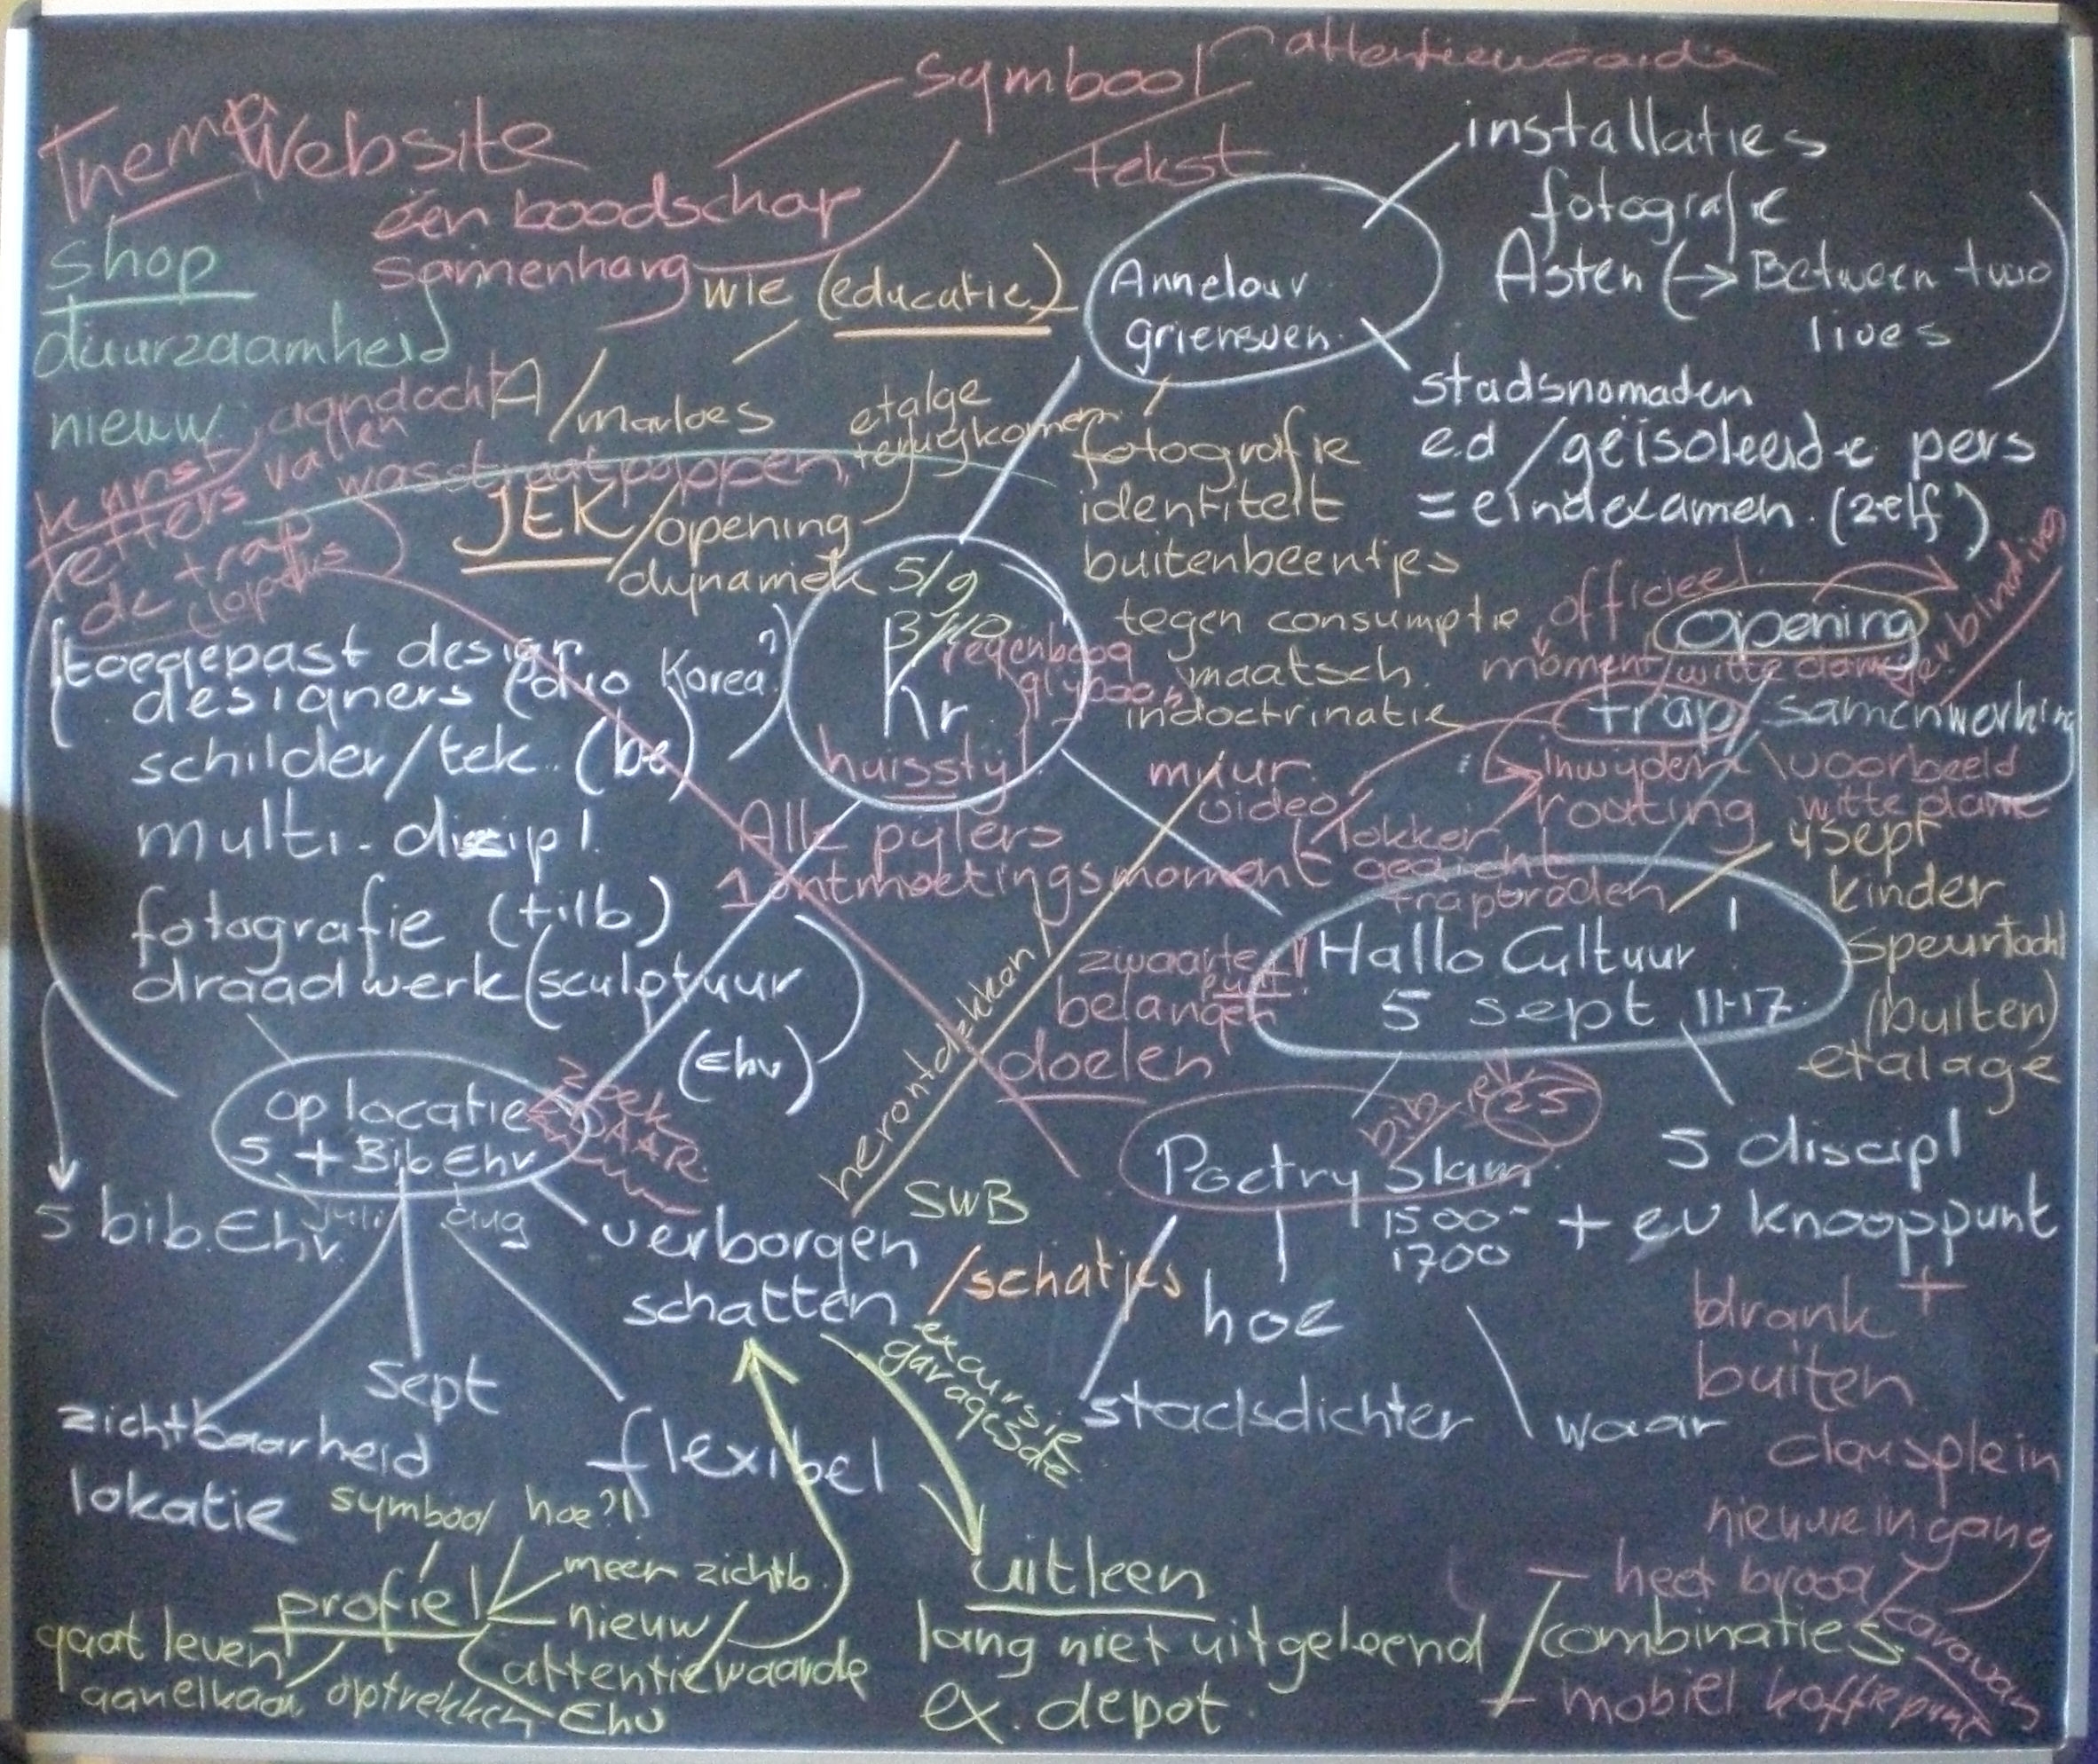 symbool
attentiewaarde
Thema
Website
tekst
één boodschap
samenhang
shop
duurzaamheid
nieuw
wie (educatie)
Annelour
griensven
installaties
fotografie
Asten (→ Between two
lives
stadsnomaden
e.d /geïsoleerde pers
= eindexamen. (zelf)
aandacht
vallen
kunst
letters
wasstraatpoppen,
de trap
/marloes
etalge
terugkomen
JEK /opening
dynamiek
fotografie
identiteit
buitenbeentjes
tegen consumptie
maatsch.
indoctrinatie
5/9
3/10
Kr
regenboog
huisstijl
officieel
opening
moment/witte dame
trap
samenwerking
inwijden
routing
voorbeeld
witte dame
toegepast design
designers
Korea?
schilder/tek. (be)
multi-discipl.
fotografie (tilb)
draadwerk (sculptuur
(Ehv)
muur
video
Alle pijlers
1 ontmoetingsmoment
lokker
gedicht
traptreden
Hallo Cultuur !
5 sept 11-17
4 sept
kinder
speurtocht
(buiten)
etalage
zwaarte
punt
belangen
doelen
herontdekken
op locatie
5 + Bib Ehv
zoek
DAAR
5 bib. Ehv.
juli
aug
sept
zichtbaarheid
lokatie
flexibel
verborgen
schatten
SWB
/schatjes
bib
25
Poetry Slam
1500-
1700
hoe
stadsdichter
waar
5 discipl
+ ev knooppunt
drank +
buiten
clausplein
nieuwe ingang
excursie
garage
symbool
hoe?!
profiel
meer zichtb.
nieuw
attentiewaarde
Ehv
gaat leven
aan elkaar optrekken
uitleen
lang niet uitgeleend
ex. depot
heet brood
/combinaties
caravan
mobiel koffiepunt